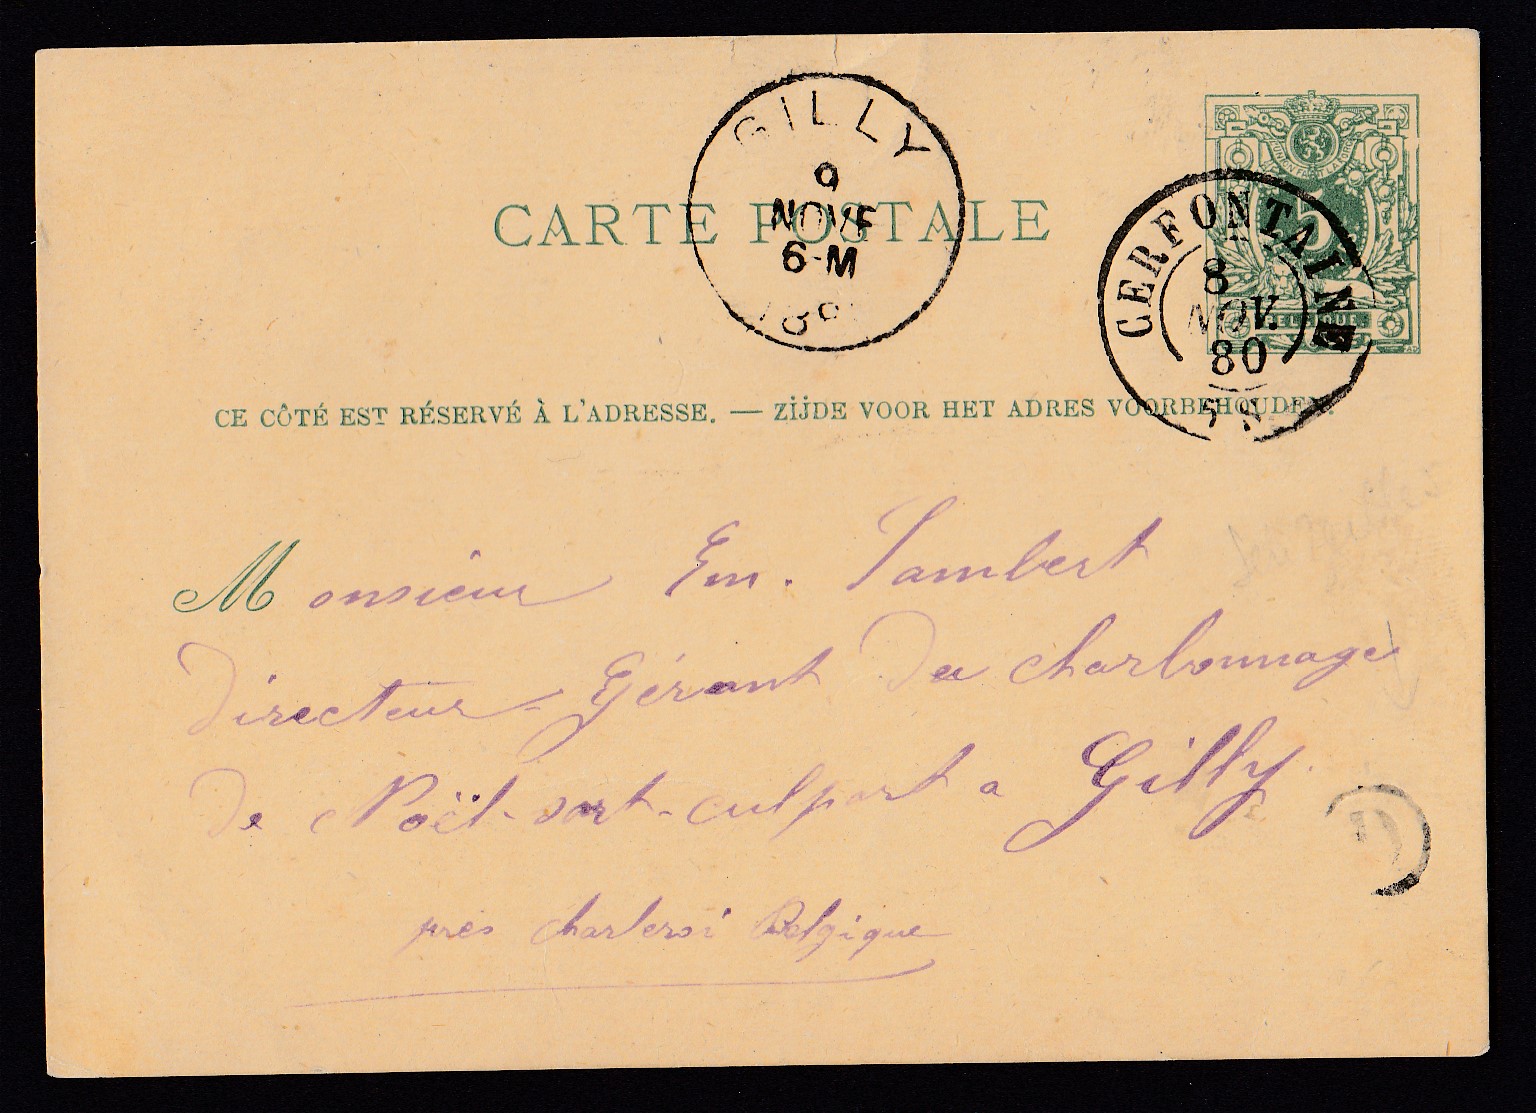 GILLY
9
NOVE
6-M
CARTE POSTALE
5
BELGIQUE
CERFONTAINE
8
NOV.
80
CE CÔTÉ EST RÉSERVÉ À L'ADRESSE. — ZIJDE VOOR HET ADRES VOORBEHOUDEN.
Monsieur Em. Lambert
Directeur-Gérant Du charbonnage
De Noël-sart-culpart a Gilly
près charleroi Belgique